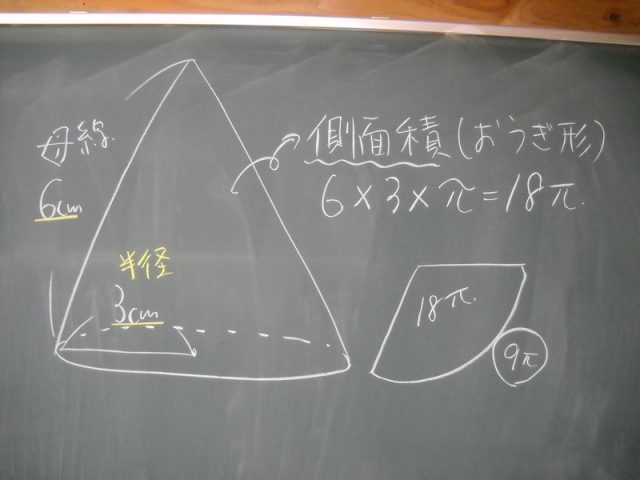 母線
6cm
半径
3cm
側面積(おうぎ形)
6×3×π=18π
18π
9π